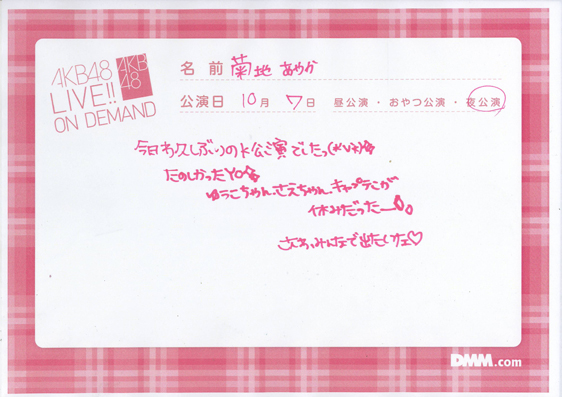 AKB48
LIVE!!
ON DEMAND
AKB
48
名前 菊地 あやか
公演日 10月 7日 昼公演・おやつ公演・夜公演
今日わ久しぶりのK公演でしたっ(*∨*)
たのしかったYO
ゆうこちゃん、さえちゃん、キャプテンが
休みだったー。
みんなで出たいな♡
DMM.com